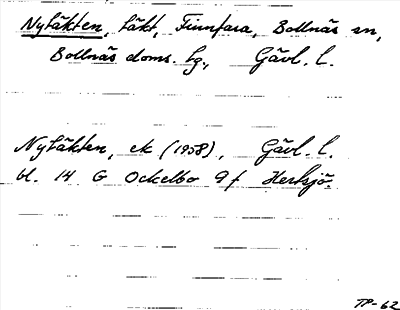 Nytäkten, täkt, Finnfara, Bollnäs sn,
Bollnäs doms. tg., Gävl. l.
Nytäkten, ek (1958), Gävl. l.
bl. 14 G Ockelbo 9f Hertsjö.
TP-62